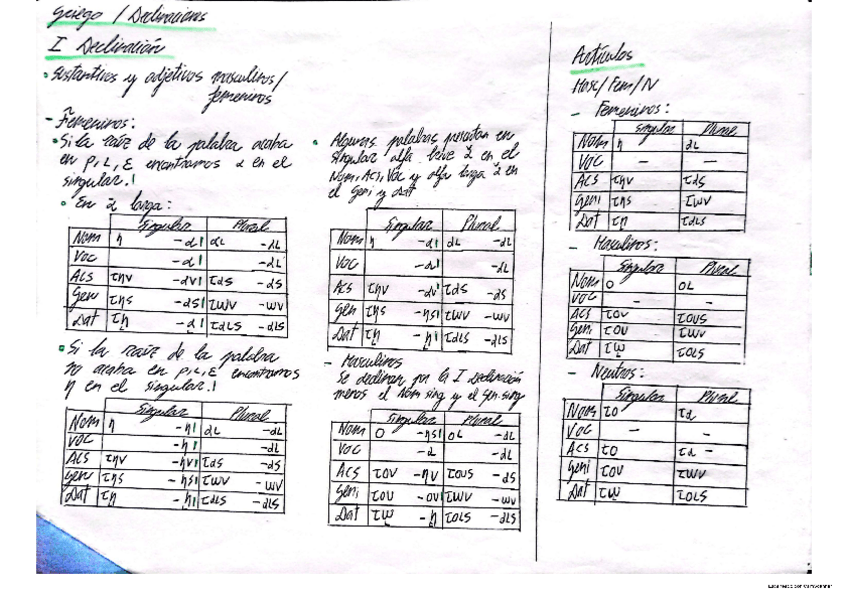 Griego / Declinaciones
I Declinación
• Sustantivos y adjetivos masculinos/
femeninos
- Femeninos:
• Si la raíz de la palabra acaba
en ρ, ι, ε encontramos α en el
singular.
• En ᾱ larga:
Singular Plural
Nom η -α αι -αι
Voc -α -αι
Acs την -αν τας -ας
Gen της -ας των -ων
Dat τη -α ταις -αις
• Si la raíz de la palabra
no acaba en ρ, ι, ε encontramos
η en el singular.
Singular Plural
Nom η -η αι -αι
Voc -η -αι
Acs την -ην τας -ας
Gen της -ης των -ων
Dat τη -η ταις -αις
• Algunas palabras presentan en
singular alfa breve ᾰ en el
Nom, Acs, Voc y alfa larga ᾱ en
el Geni y Dat
Singular Plural
Nom η -α αι -αι
Voc -α -αι
Acs την -αν τας -ας
Gen της -ης των -ων
Dat τη -η ταις -αις
- Masculinos
Se declinan por la I declinación
menos el Nom sing y el Gen. sing
Singular Plural
Nom ο -ης οι -αι
Voc -α -αι
Acs τον -ην τους -ας
Geni του -ου των -ων
Dat τω -η τοις -αις
Artículos
Masc/Fem/N
- Femeninos:
Singular Plural
Nom η αι
Voc - -
Acs την τας
Geni της των
Dat τη ταις
- Masculinos:
Singular Plural
Nom ο οι
Voc - -
Acs τον τους
Gen του των
Dat τω τοις
- Neutros:
Singular Plural
Nom το τα
Voc - -
Acs το τα -
Geni του των
Dat τω τοις